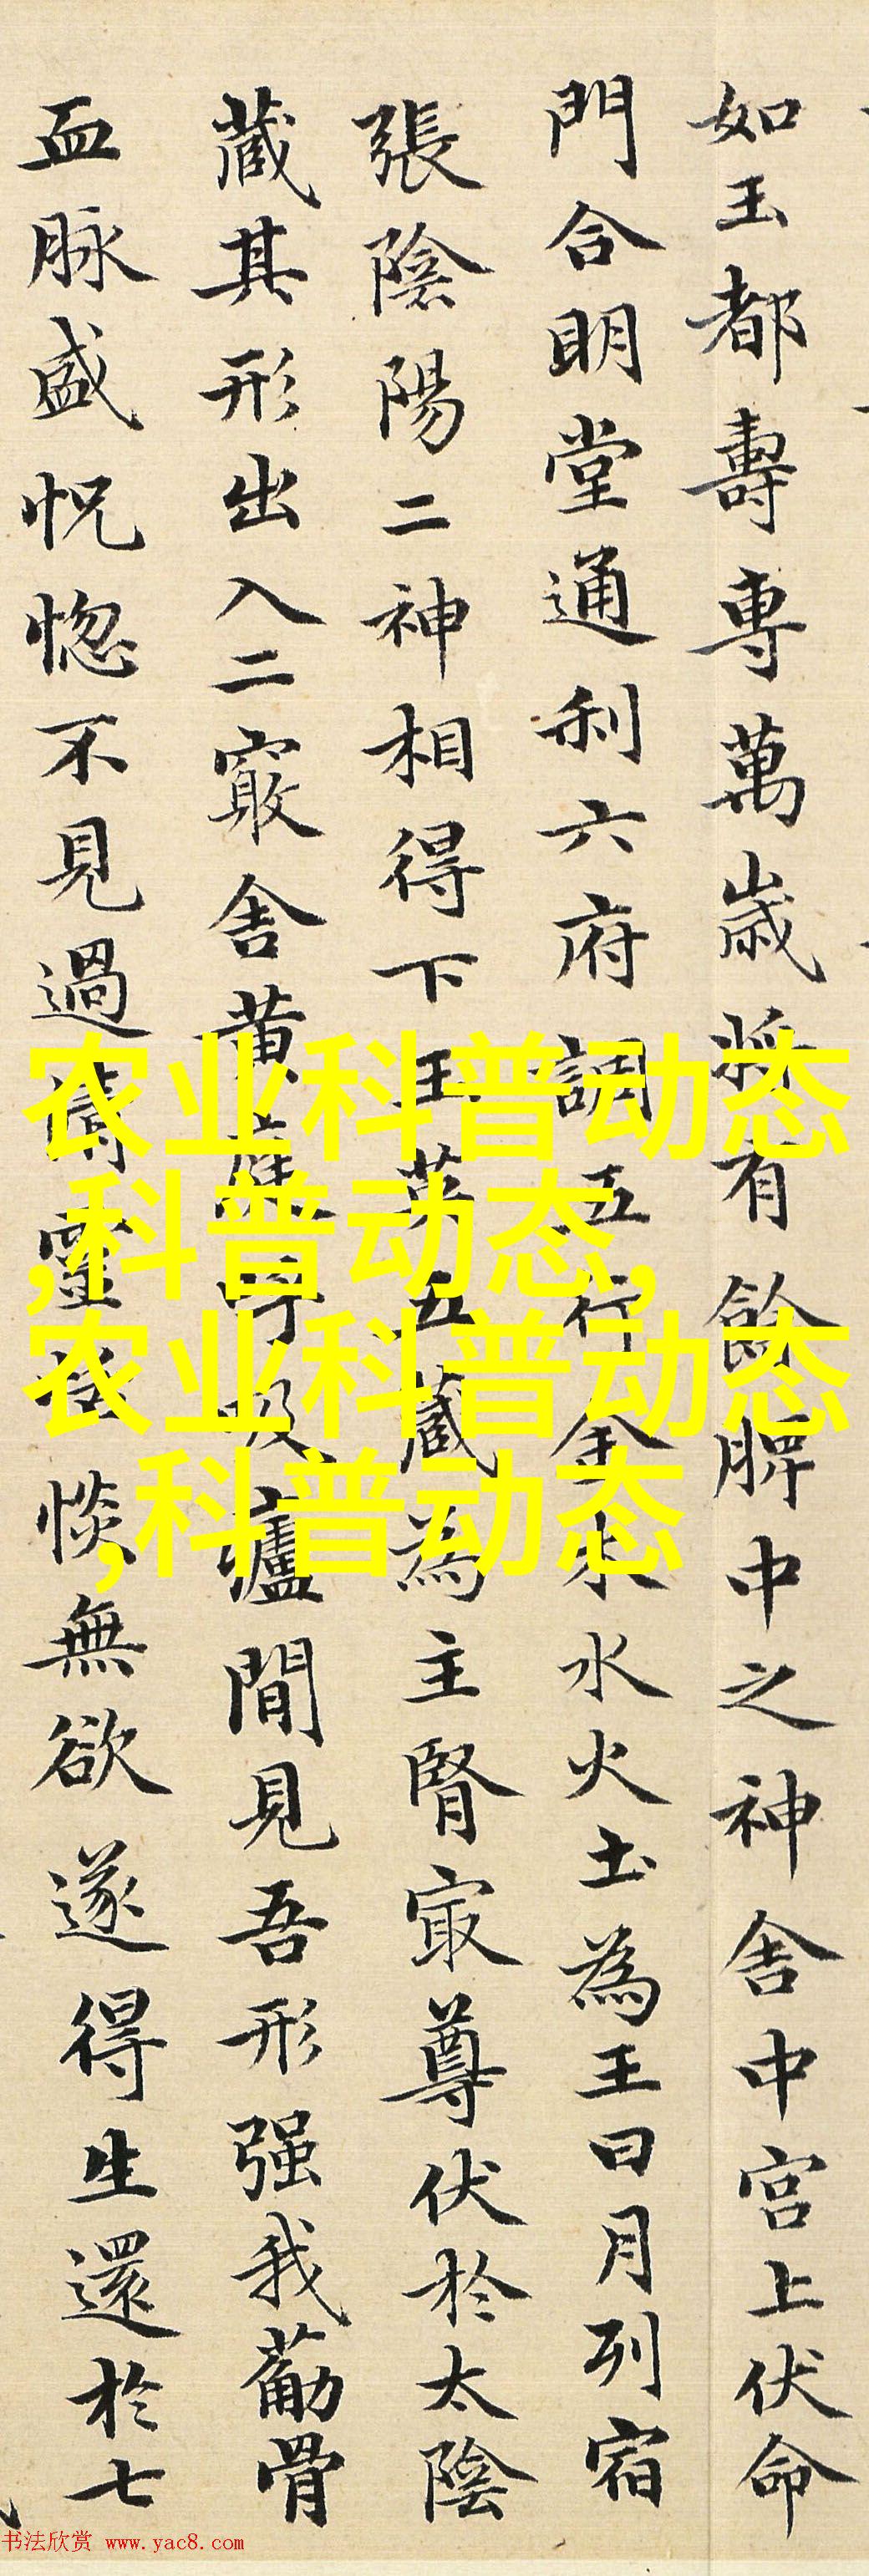 如玉都壽專萬歲將有餘脾中之神舍中宮上伏命
門合明堂通利六府調五行金木水火土為王日月列宿
張陰陽二神相得下玉英五藏為主腎宼尊伏於太陰
藏其形出入二竅舍黃庭呼吸廬間見吾形强我筋骨
血脉盛怳惚不見過清靈恬惔無欲遂得生還於七
农业科普动态
,科普动态,
农业科普动态
,科普动态
书法欣赏 www.yac8.com